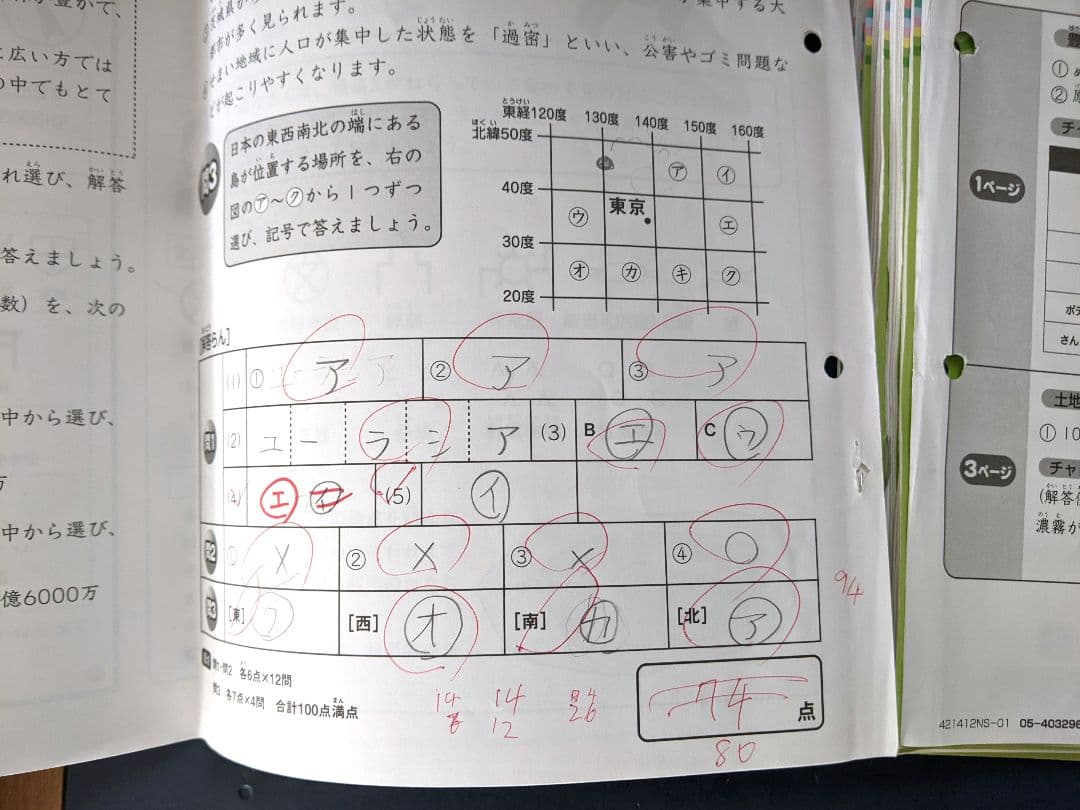 都市が多く見られます。
せまい地域に人口が集中した状態を「過密」といい、公害やゴミ問題な
どが起こりやすくなります。
広い方では
の中でもとて
れ選び、解答
答えましょう。
数）を、次の
中から選び、
中から選び、
億6000万
日本の東西南北の端にある
島が位置する場所を、右の
図の㋐〜㋗から1つずつ
選び、記号で答えましょう。
東経120度 130度 140度 150度 160度
北緯50度
㋐ ㋑
40度
㋒ 東京 ㋓
30度
㋔ ㋕ ㋖ ㋗
20度
[解答らん]
問1 (1) ① ア ② ア ③ ア
(2) ユーラシア (3) B ㋓ C ㋒
(4) ㋓ (5) ㋑
問2 ① × ② × ③ × ④ ○
問3 [東] [西] ㋔ [南] ㋕ [北] ㋐
問1・問2 各6点×12問
問3 各7点×4問 合計100点満点
14 14
12 26
74 点
80
94
1ページ
① 
② 
3ページ
土地
① 10
チャ
(解答
濃霧が
421412NS-01 05-403296